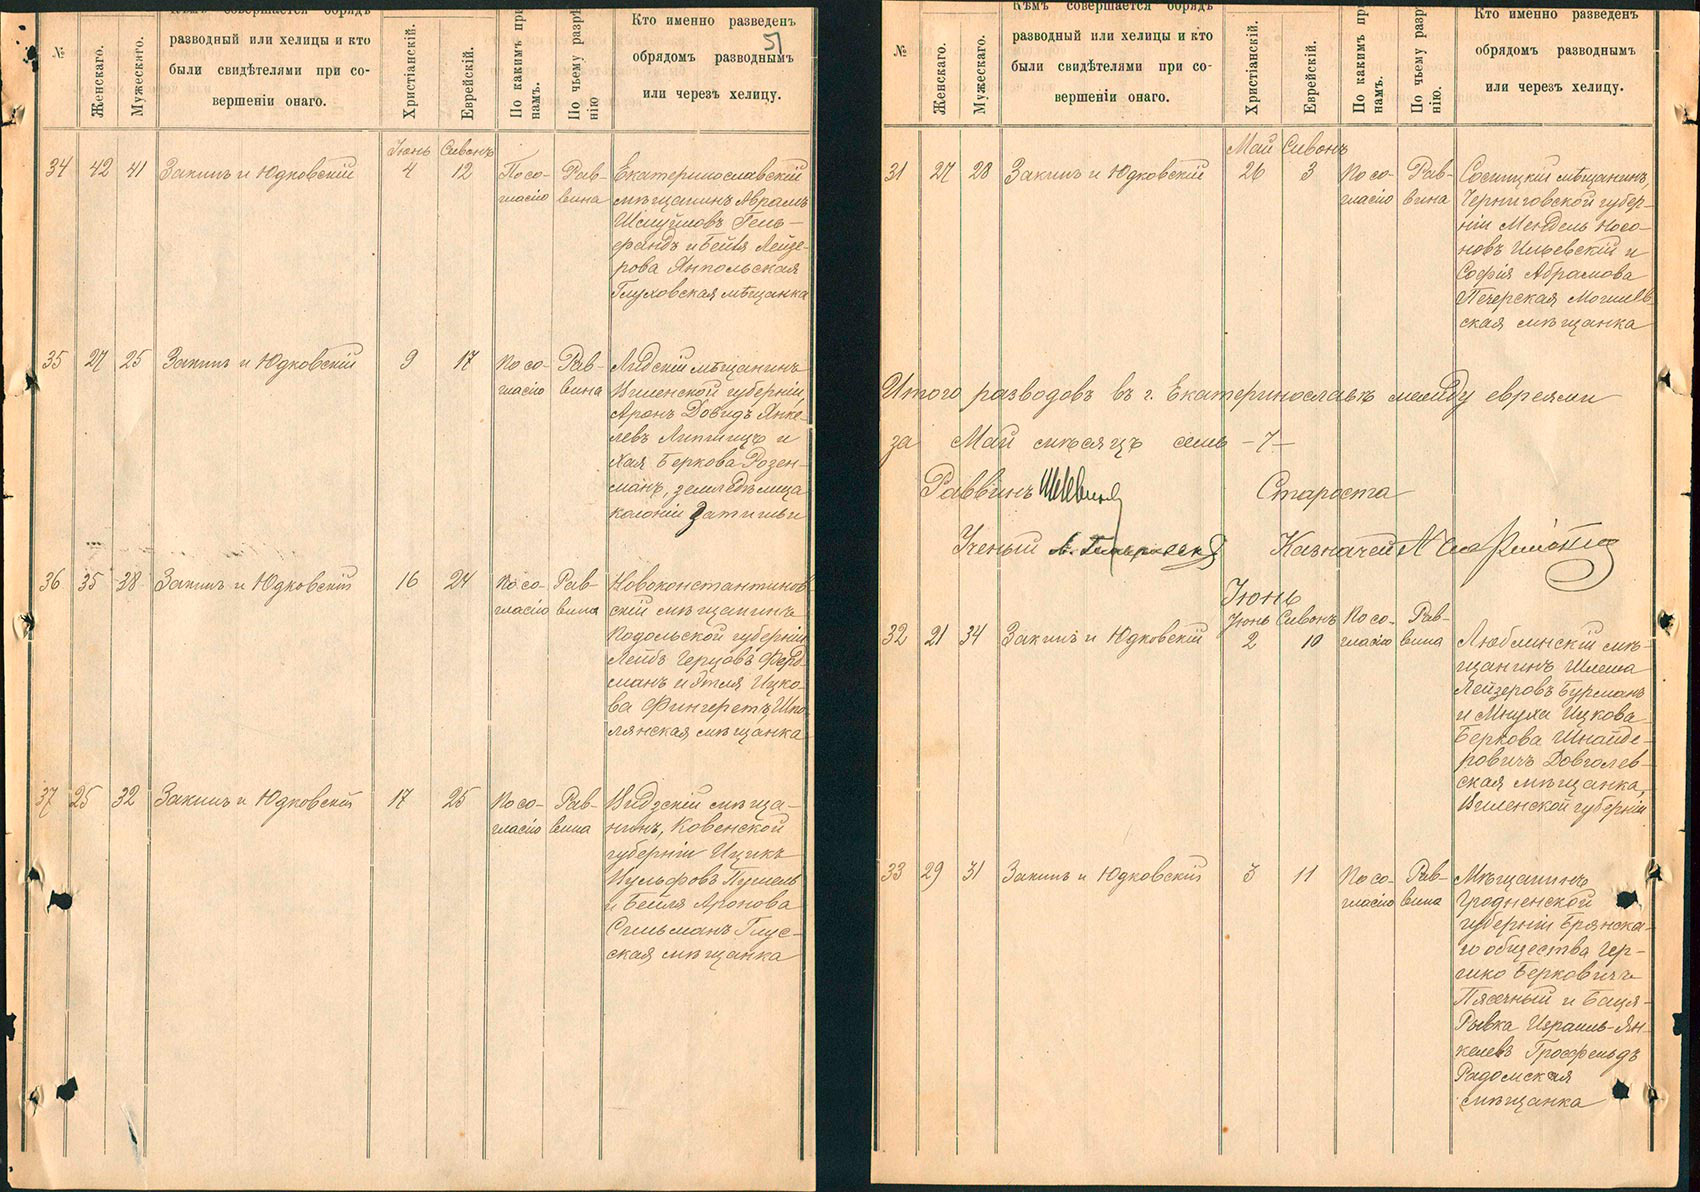 51
№
Женскаго.
Мужескаго.
Кѣмъ совершается обрядъ
разводный или хелицы и кто
были свидѣтелями при со-
вершеніи онаго.
Христіанскій.
Еврейскій.
По какимъ при
намъ.
По чьему разрѣ
нію
Кто именно разведенъ
обрядомъ разводнымъ
или черезъ хелицу.
Іюнь Сивонъ
34 42 41 Закинъ и Юдковскій 4 12 По со- Рав- Екатеринославскій
гласію вина мѣщанинъ Аврамъ
Шмуйловъ Гель-
фандъ и Бейля Лейзе-
рова Янпольская
Глуховская мѣщанка
35 27 25 Закинъ и Юдковскій 9 17 По со- Рав- Лидскій мѣщанинъ
гласію вина Виленской губерніи,
Аронъ Довидъ Янке-
левъ Липшицъ и
Хая Беркова Розен-
манъ, земледѣлица
колоніи Затишьи
36 35 38 Закинъ и Юдковскій 16 24 По со- Рав- Новоконстантинов-
гласію вина скій мѣщанинъ
Подольской губерніи
Лейбъ Герцовъ Фельд
манъ и Этля Ицко-
ва Фингеретъ, Шпо-
лянская мѣщанка
37 25 32 Закинъ и Юдковскій 17 25 По со- Рав- Видзскій мѣща-
гласію вина нинъ, Ковенской
губерніи Ицикъ
Вульфовъ Пумель
и Бейля Аронова
Сильманъ Глус-
ская мѣщанка
№
Женскаго.
Мужескаго.
Кѣмъ совершается обрядъ
разводный или хелицы и кто
были свидѣтелями при со-
вершеніи онаго.
Христіанскій.
Еврейскій.
По какимъ пр
намъ.
По чьему разр
нію.
Кто именно разведенъ
обрядомъ разводнымъ
или черезъ хелицу.
Май Сивонъ
31 27 28 Закинъ и Юдковскій 26 3 По со- Рав- Сосницкій мѣщанинъ,
гласію вина Черниговской губер-
ніи Мендель Носо-
новъ Ильевскій и
Софія Абрамова
Печерская Могилев-
ская мѣщанка
Итого разводовъ въ г. Екатеринославѣ между евреями
за Май мѣсяцъ семь -7-
Раввинъ Староста
Ученый Казначей
Іюнь
Іюнь Сивонъ
32 21 34 Закинъ и Юдковскій 2 10 По со- Рав- Люблинскій мѣ-
гласію вина щанинъ Шлема
Лейзеровъ Бурманъ
и Мнуха Ицкова
Беркова Шнайде-
ровичъ Довголев-
ская мѣщанка,
Виленской губерніи
33 29 31 Закинъ и Юдковскій 3 11 По со- Рав- Мѣщанинъ
гласію вина Гродненской
губерніи Брянска-
го общества Гер-
шко Берковичъ
Пясечный и Бася-
Рывка Израиль-Ян-
келевъ Гросфельдъ
Радомская
мѣщанка